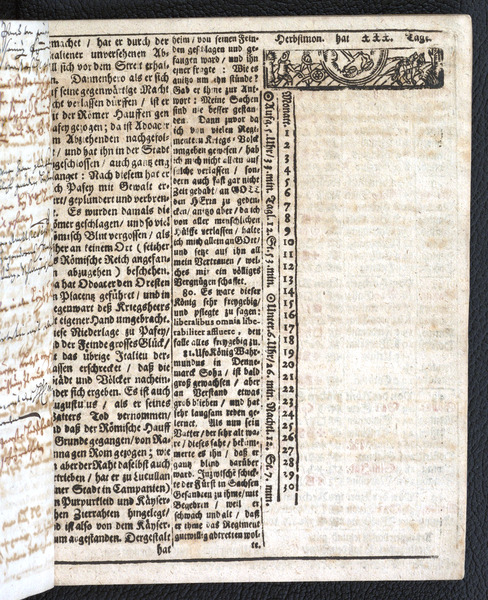 machet / hat er durch der
taliener unversehenen Ab-
ll sich vor dem Streit erhal-
Dannenhero als er sich
uf seine gegenwärtige Macht
cht verlassen dürffen / ist er
it der Römer Hauffen gen
afey gezogen; da ist Adoacer
m Abziehenden nachgefol-
/ und hat ihn in der Stadt
geschlossen / auch gantz eng
anget: Nach diesem hat er
ch Pafey mit Gewalt er-
ert / geplündert und verbren-
Es wurden damals die
ömer geschlagen / und so viel
ömisch Blut vergossen / als
her an keinem Ort (seither
Römische Reich angefan-
abzugehen) beschehen.
a hat Odoacer den Oresten
n Placentz geführet / und in
egenwart deß Kriegsheers
t eigener Hand umgebracht.
iese Niederlage zu Pafey /
d der Feinde grosses Glück /
t das übrige Italien der-
assen erschrecket / daß die
tädt und Völcker nachein-
der sich ergeben. Es ist auch
ugustulus / als er seines
atters Tod vernommen /
d daß der Römische Hauff
Grunde gegangen / von Ra-
nna gen Rom gezogen; wie
n aber der Raht daselbst auch
rtrieben / hat er zu Lucullan
ner Stadt in Campanien)
n Purpurkleid und Käyser-
hen Zierrahten hingelegt /
d ist also von dem Käyser-
um abgestanden. Dergestalt
hat
heim / von seinen Fein-
den geschlagen und ge-
fangen ward / und ihn
einer fragte: Wie es
anitzo um ihn stünde?
Gab er ihme zur Ant-
wort: Meine Sachen
sind nie besser gestan-
den. Dann zuvor da
ich von vielen Regi-
mentern Kriegs-Volck
umgeben gewesen / hab
ich mich nicht allein auf
solche verlassen / son-
dern auch fast gar nicht
Zeit gehabt / an GOTT
den HErrn zu geden-
cken / anitzo aber / da ich
von aller menschlichen
Hülffe verlassen / halte
ich mich allein an GOtt
und setze auf ihn all
mein Vertrauen / wel-
ches mir ein völliges
Vergnügen schaffet.
80. Es ware dieser
König sehr freygebig /
und pflegte zu sagen:
liberalibus omnia libe-
rabiliter affluere, den
falle alles freygebig zu.
81. Ufo König Wahr-
mundus in Denne-
marck Sohn / ist bald
groß gewachsen / aber
am Verstand etwas
grob blieben / und hat
sehr langsam reden ge-
lernet. Als nun sein
Vatter / der sehr alt wa-
re / dieses sahe / beküm-
merte es ihn / daß er
gantz blind darüber
ward. Inzwischen schick-
te der Fürst in Sachsen
Gesandten zu ihme / mit
Begehren / weil er
schwach und alt / daß
er ihme das Regiment
gutwillig abtretten wol-
te.
Herbstmon. hat XXX. Tage.
Monat.
1
2
3
4
5
6
7
8
9
10
11
12
13
14
15
16
17
18
19
20
21
22
23
24
25
26
27
28
29
30
☉ Aufg. 5. Uhr / 33. min. Tagl. 12. St. 53. min. ☉ Unter. 6. Uhr / 26. min. Nachtl. 12. St. 7. min.